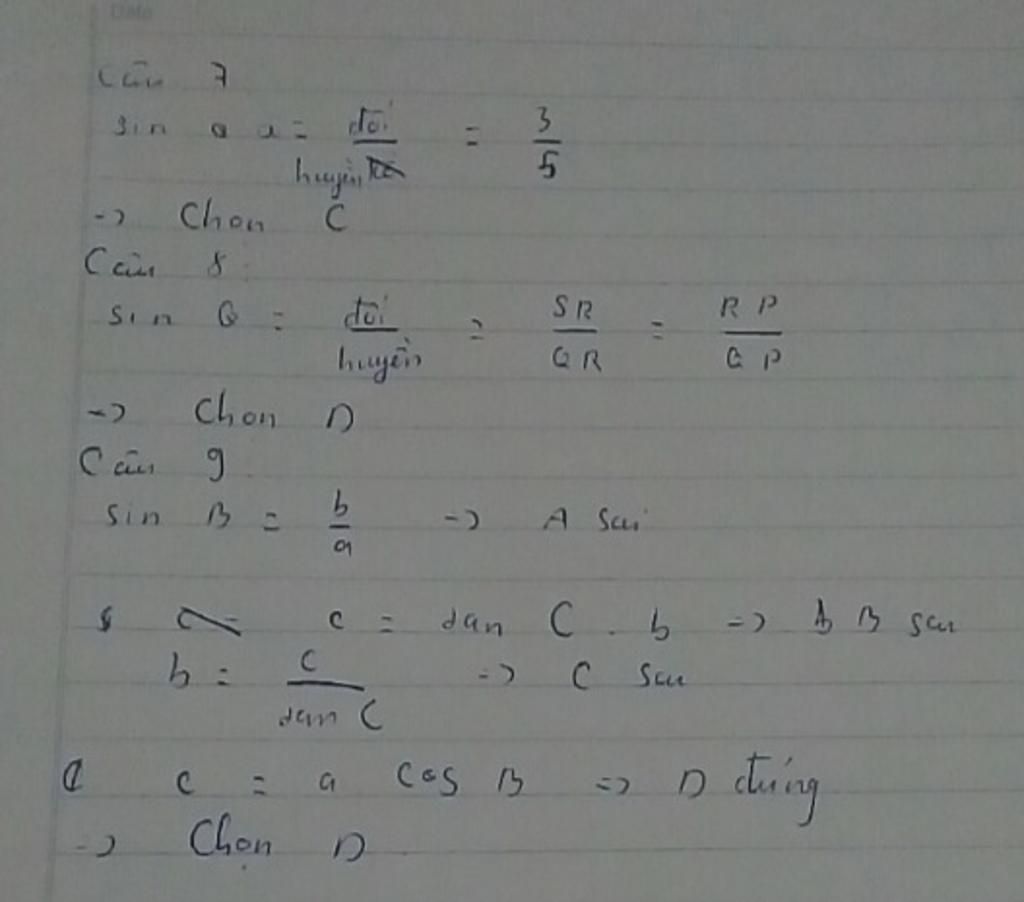 Date
Câu 7
sin α = đối/huyền = 3/5
-> Chon C
Câu 8
sin Q = đối/huyền = SR/QR = RP/QP
-> Chon D
Câu 9
sin B = b/a -> A sai
c = tan C . b -> B sai
b = c/tan C -> C sai
c = a cos B => D đúng
-> Chọn D